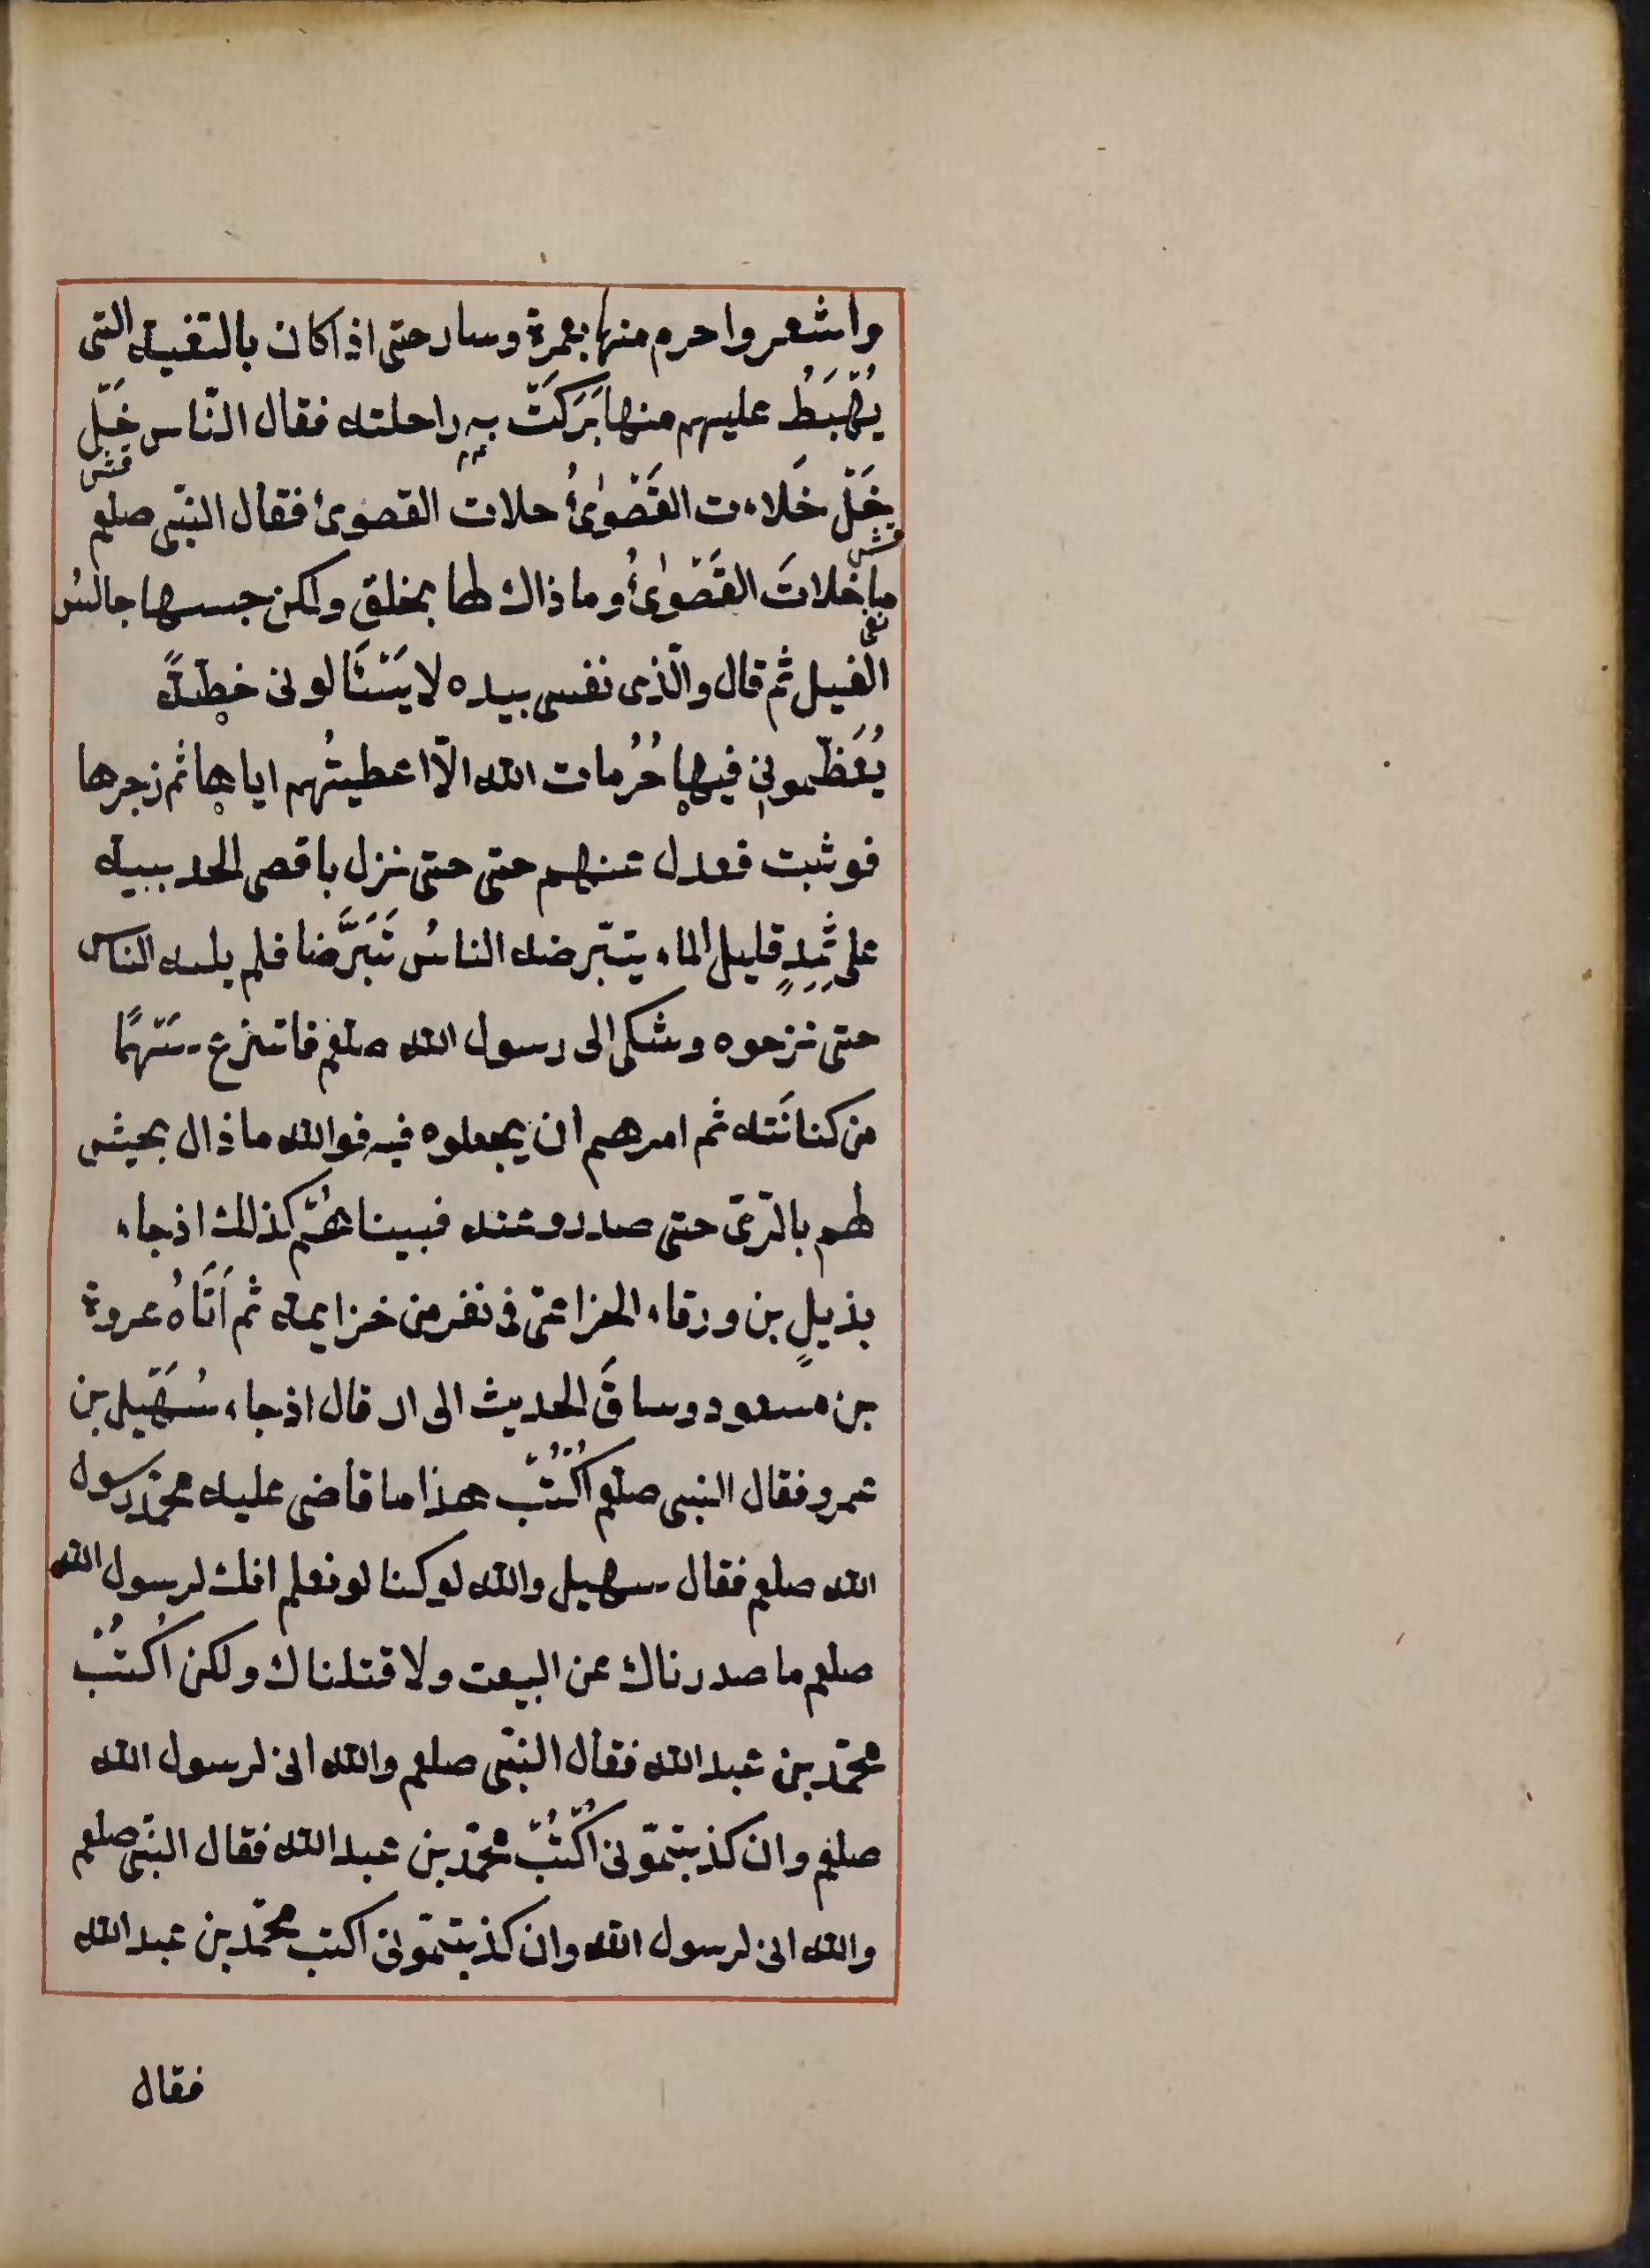 واشعر واحرم منها بعمرة وسار حتى اذا كان بالثغيه التى
يُهْبَطُ عليهم منها بَرَكَتْ بِهِ راحلته فقال النّاس خَلْ
خَلْ خَلاءت القَصْوٰىُٔ حلات القصوىٔ فقال النّبى صلعم
ما خلاتَ القَصْوٰىُٔ وما ذاك لها بخلق ولكن حبسها حابس
الفيل ثم قال والّذى نفسى بيده لا يَسْئَالونى خطةً
يُعَظّمونِ فيها حُرُمات الله الّا اعطيتُهم اياها ثم زجرها
فوثبت فعدل عنهم حتى حتى نزل باقصى الحديبيه
على ثمدٍ قليل الماء يتبّرضه الناسُ تَبَرَّضا فلم يلبه الناس
حتى نزحوه وشكى الى رسول الله صلعم فانتزع سَهمًا
من كنانَته ثم امرهم ان يجعلوه فيه فوالله ما ذال يجيش
لهم بالرّىّ حتى صدروعنه فبيناهُم كذلك اذ جاء
بذيلٍ بن ورقاء الخزاعى فى نفر من خزايمه ثم اَتَاهُ عروة
بن مسعود وساقَ الحديث الى ان قال اذ جاء سُهَيل بن
عمرو فقال النبى صلعم اُكْتُبْ هذا ما قاضى عليه محمّد رسول
الله صلعم فقال سهيل والله لو كنا لو نعلم انك لرسول الله
صلعم ما صدرناك عن البيعت ولا قتلناك ولكن اُكتُبْ
محمّد بن عبد الله فقال النبّى صلعم والله انى لرسول الله
صلعم وان كذبتمّونى اكْتُبْ محمّد بن عبد الله فقال النبّى صلعم
والله انى لرسول الله وان كذبتمّونى اكتب محمّد بن عبد الله
فقال